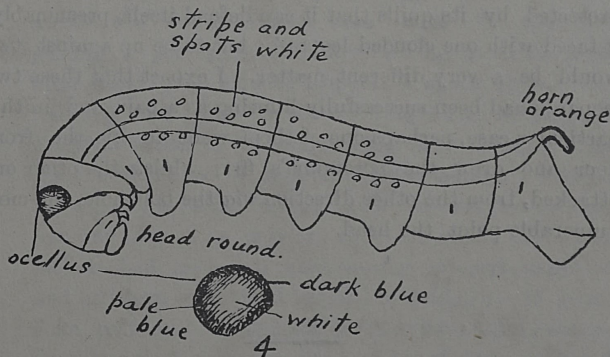 stripe and
spots white
horn
orange
head round.
ocellus
dark blue
pale
blue
white
4